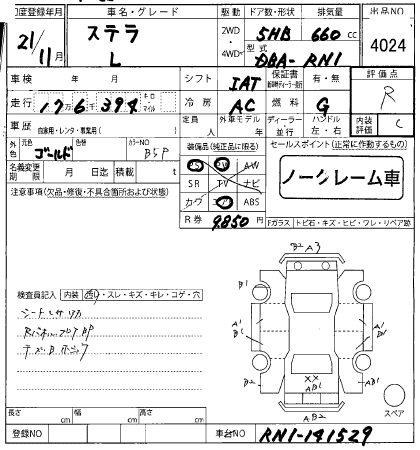 初度登録年月 車名・グレード 駆動 ドア数・形状 排気量 出品NO
21/11月 ステラ L 2WD 4WD 5HB 660 cc 4024
型式 DBA-RN1
車検 年 月 シフト IAT 保証書 有・無 評価点 R
走行 17万6千394 キロ・マイル 冷房 AC 燃料 G
車歴 自家用・レンタ・事業用( ) 定員 人 外車モデル 年 ディーラー 並行 ハンドル 左・右 内装評価 C
外色 元色 ゴールド 色替 カラーNO B5P 装備品(純正品に限る) セールスポイント(正常に作動するもの)
名義変更期限 月 日迄 積載 t PS PW AW ノークレーム車
注意事項(欠品・修復・不具合箇所および状態) SR TV ナビ
カワ エアB ABS
R券 9850円 Fガラス トビ石・キズ・ヒビ・ワレ・リペア跡
B2 A3
B1
A1 B1 A1 B1
検査員記入 内装 スレ・キズ・キレ・コゲ・穴
B2 XX AB1 AB1
AB2
スペア
長さ cm 幅 cm 高さ cm
登録NO 車台NO RN1-141529